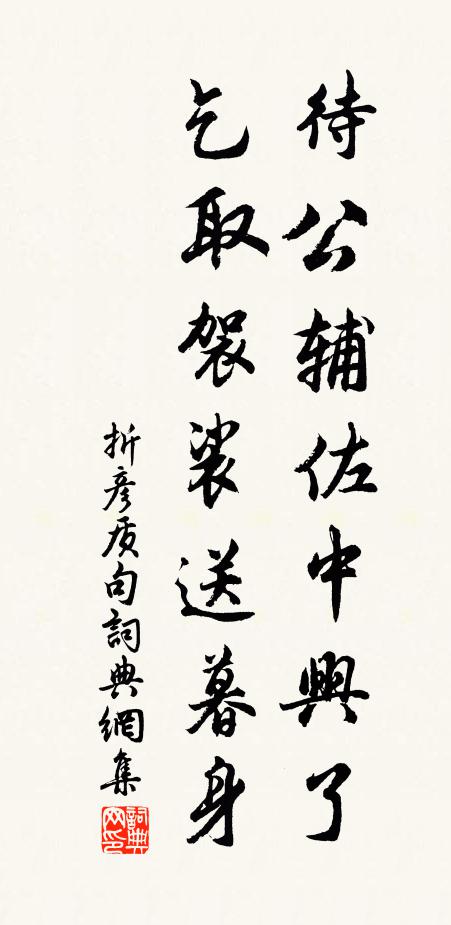 待公辅佐中興了
乞取袈裟送暮身
折彦质句詞典網集
詞典网印